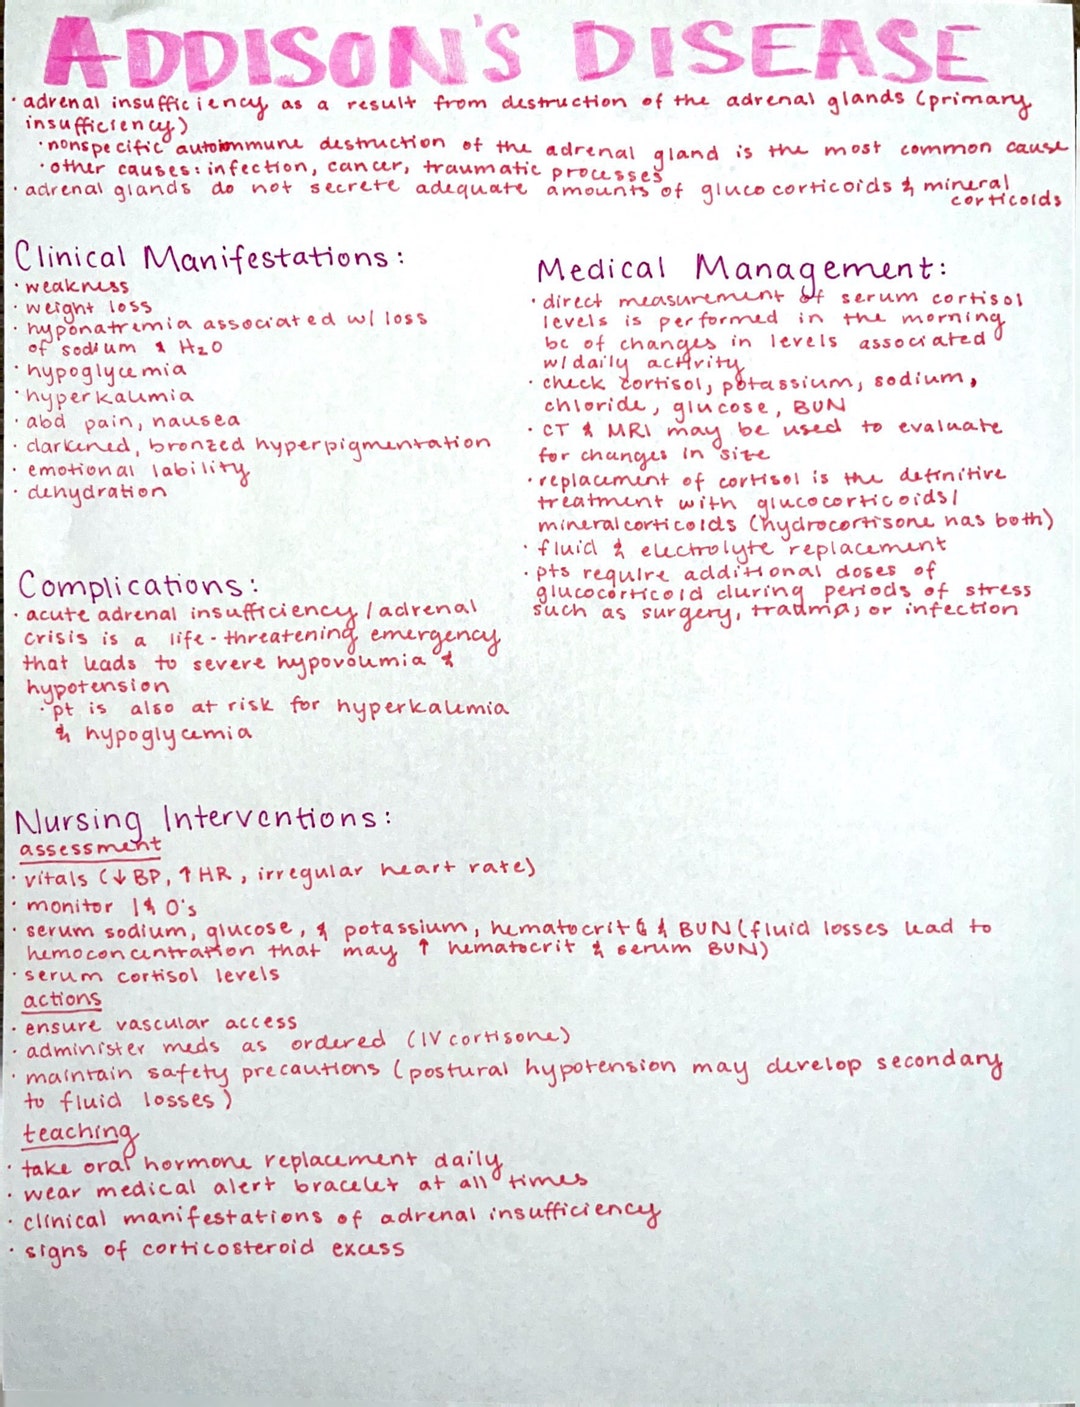 ADDISON'S DISEASE
· adrenal insufficiency as a result from destruction of the adrenal glands (primary
insufficiency)
· nonspecific autoimmune destruction of the adrenal gland is the most common cause
· other causes: infection, cancer, traumatic processes
· adrenal glands do not secrete adequate amounts of glucocorticoids & mineral
corticoids
Clinical Manifestations:
· weakness
· weight loss
· hyponatremia associated w/ loss
of sodium & H2O
· hypoglycemia
· hyperkalemia
· abd pain, nausea
· darkened, bronzed hyperpigmentation
· emotional lability
· dehydration
Complications:
· acute adrenal insufficiency / adrenal
crisis is a life-threatening emergency
that leads to severe hypovolemia &
hypotension
· pt is also at risk for hyperkalemia
& hypoglycemia
Medical Management:
· direct measurement of serum cortisol
levels is performed in the morning
bc of changes in levels associated
w/ daily activity
· check cortisol, potassium, sodium,
chloride, glucose, BUN
· CT & MRI may be used to evaluate
for changes in size
· replacement of cortisol is the definitive
treatment with glucocorticoids/
mineralcorticoids (hydrocortisone has both)
· fluid & electrolyte replacement
· pts require additional doses of
glucocorticoid during periods of stress
such as surgery, trauma, or infection
Nursing Interventions:
assessment
· vitals (↓ BP, ↑ HR, irregular heart rate)
· monitor I & O's
· serum sodium, glucose, & potassium, hematocrit & BUN (fluid losses lead to
hemoconcentration that may ↑ hematocrit & serum BUN)
· serum cortisol levels
actions
· ensure vascular access
· administer meds as ordered (IV cortisone)
· maintain safety precautions (postural hypotension may develop secondary
to fluid losses)
teaching
· take oral hormone replacement daily
· wear medical alert bracelet at all times
· clinical manifestations of adrenal insufficiency
· signs of corticosteroid excess